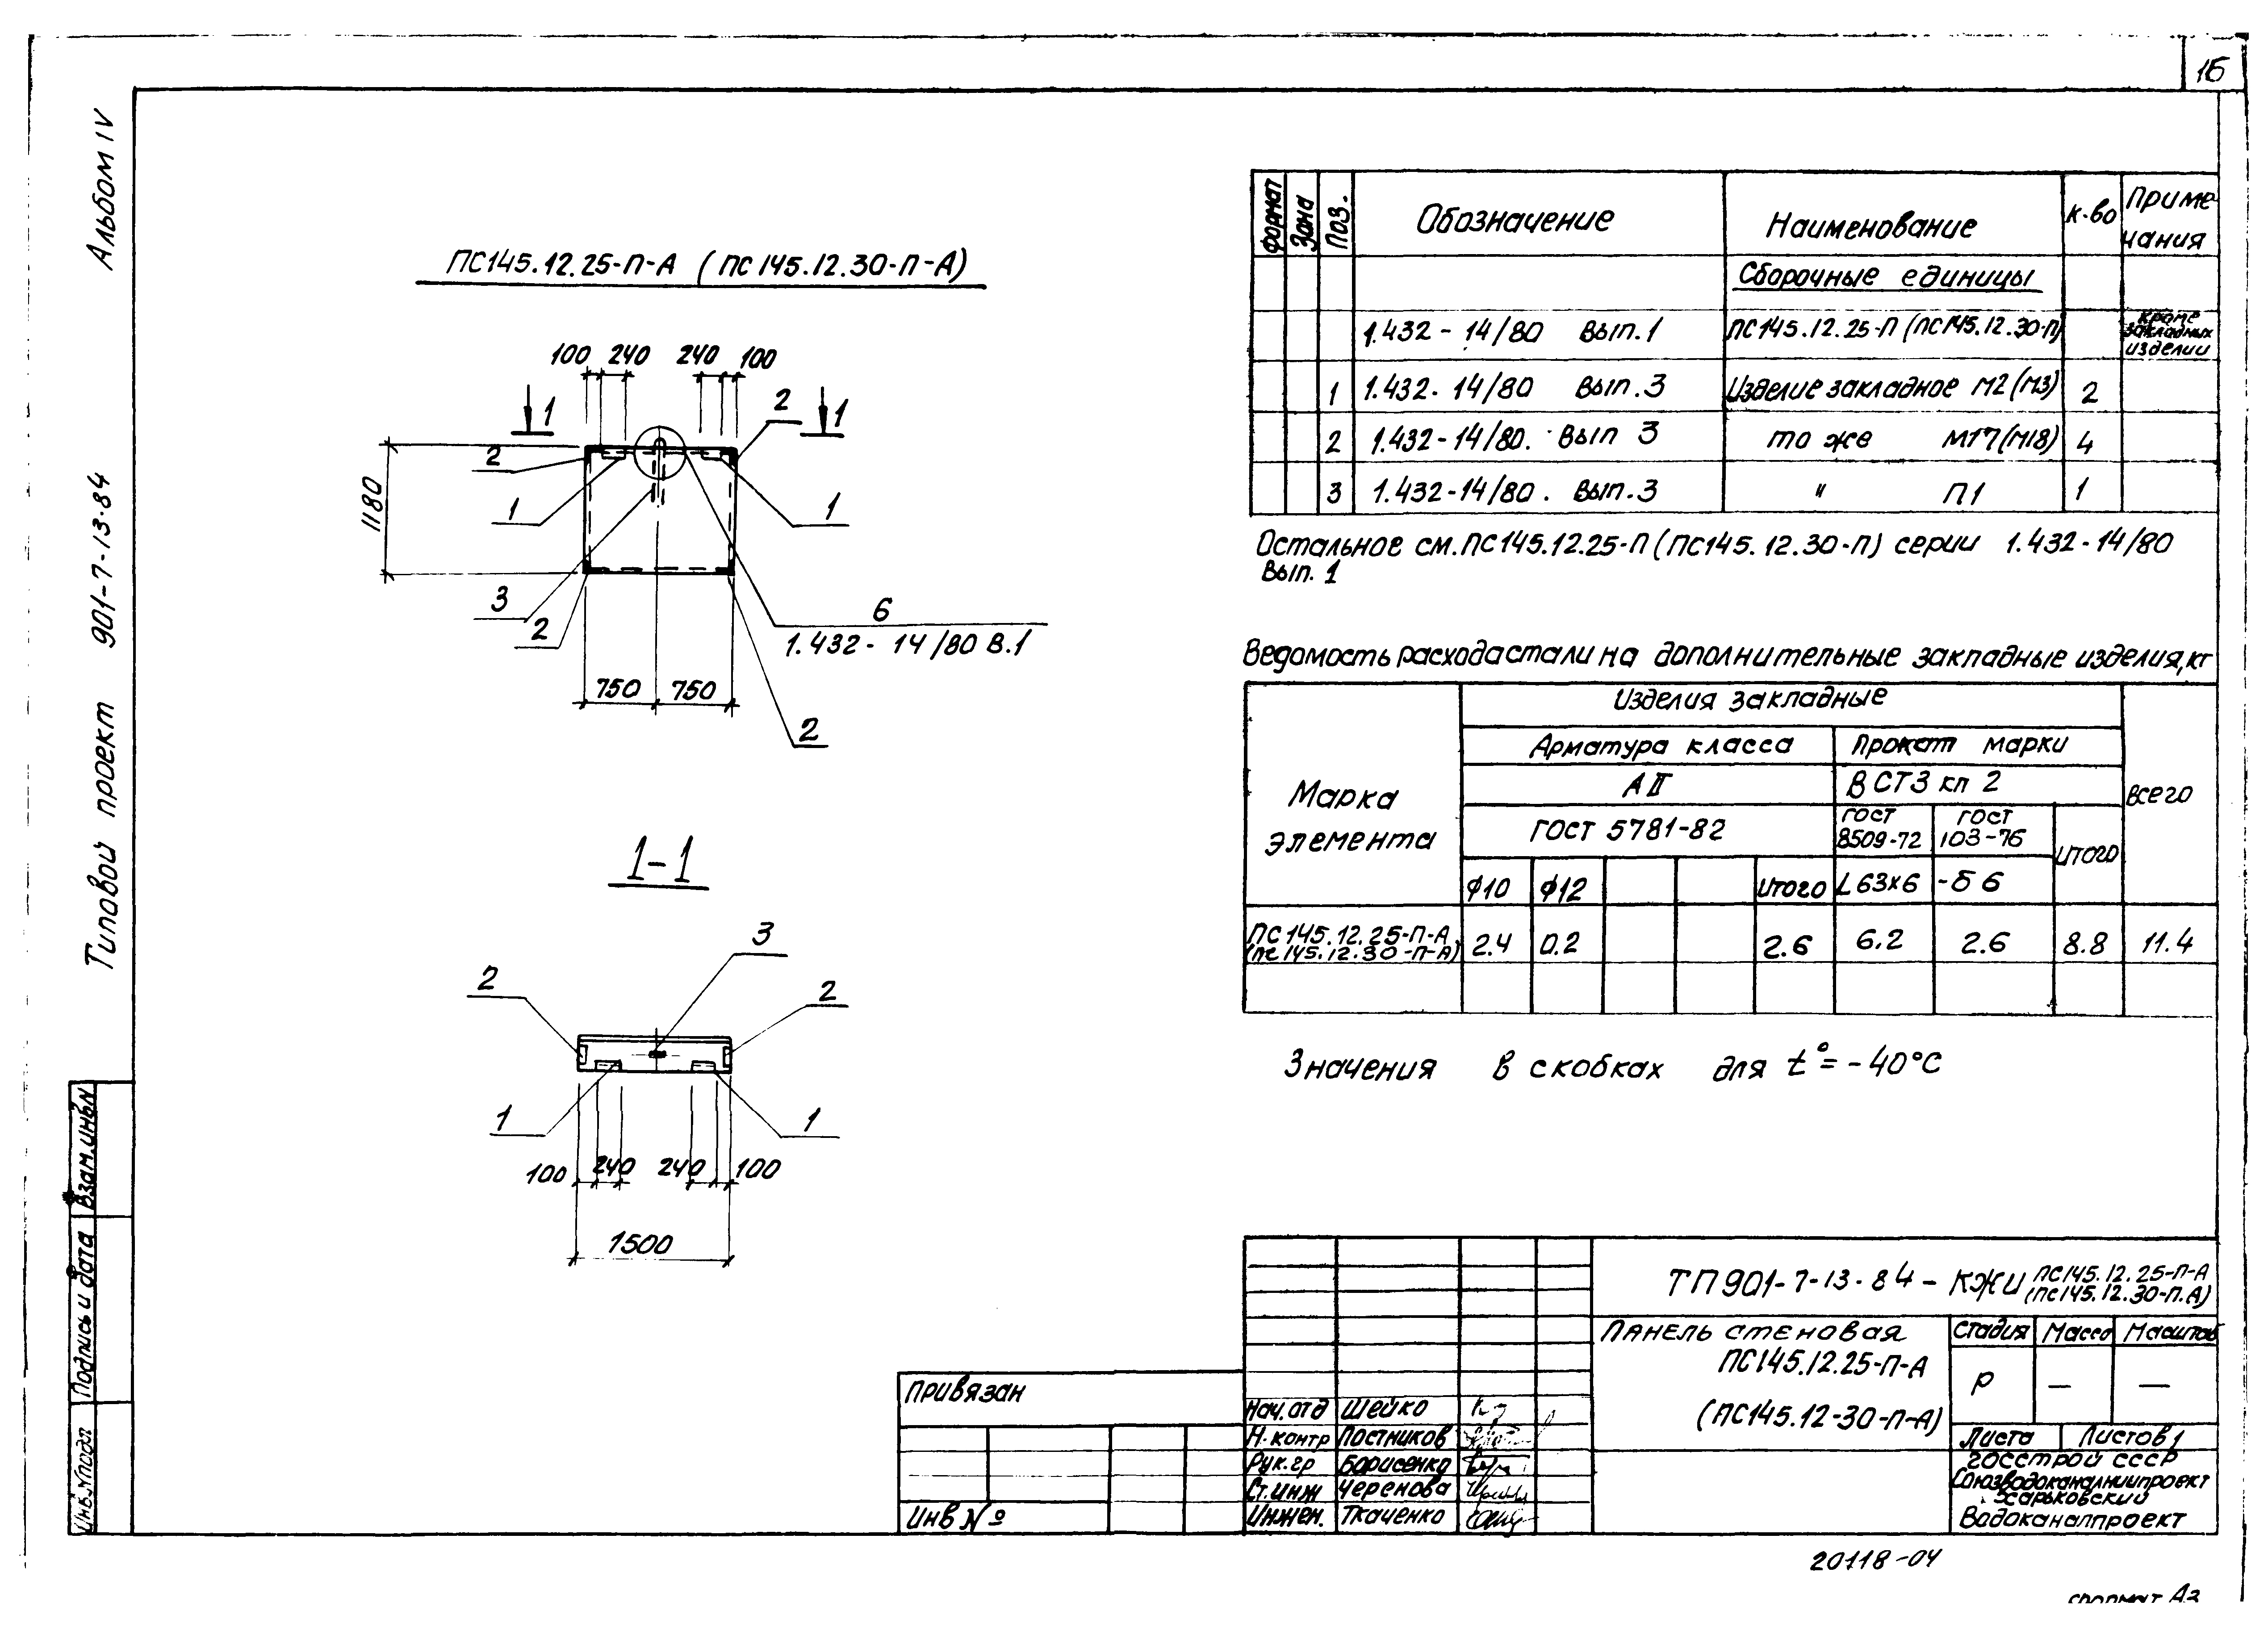 16
Альбом IV
Типовой проект 901-7-13-84
ПС145.12.25-П-А (ПС145.12.30-П-А)
100 240 240 100
1 1
2
2
1 1
1180
3
2
6
1.432-14/80 В.1
750 750
2
1-1
3
2 2
1 1
100 240 240 100
1500
Формат Зона Поз. Обозначение Наименование К-во Приме-
чания
Сборочные единицы
1.432-14/80 Вып.1 ПС145.12.25-П (ПС145.12.30-П) кроме
закладных
изделий
1 1.432-14/80 Вып.3 Изделие закладное М2(М3) 2
2 1.432-14/80. Вып 3 то же М17(М18) 4
3 1.432-14/80. Вып.3 " П1 1
Остальное см. ПС145.12.25-П (ПС145.12.30-П) серии 1.432-14/80
Вып. 1
Ведомость расхода стали на дополнительные закладные изделия, кг
Марка
элемента
Изделия закладные
Всего
Арматура класса Прокат марки
А II ВСТ3 кп 2
ГОСТ 5781-82 ГОСТ
8509-72 ГОСТ
103-76 Итого
ϕ10 ϕ12 Итого L63x6 -δ6
ПС145.12.25-П-А
(ПС145.12.30-П-А) 2.4 0.2 2.6 6.2 2.6 8.8 11.4
Значения в скобках для t°= -40°С
ТП901-7-13-84-КЖИ ПС145.12.25-П-А
(ПС145.12.30-П.А)
Панель стеновая
ПС145.12.25-П-А
(ПС145.12-30-П-А)
Стадия Масса Масштаб
Р — —
Листа Листов 1
Госстрой СССР
Союзводоканалниипроект
Харьковский
Водоканалпроект
Нач.отд Шейко
Н.контр Постников
Рук.гр Борисенко
Ст.инж Черенова
Инжен. Ткаченко
Привязан
Инв №
Взам.инв.N
Подпись и дата
Инв.Nподл
20118-04
Формат А3